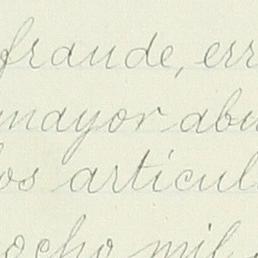 fraude, err
mayor abu
los articul
ocho mil